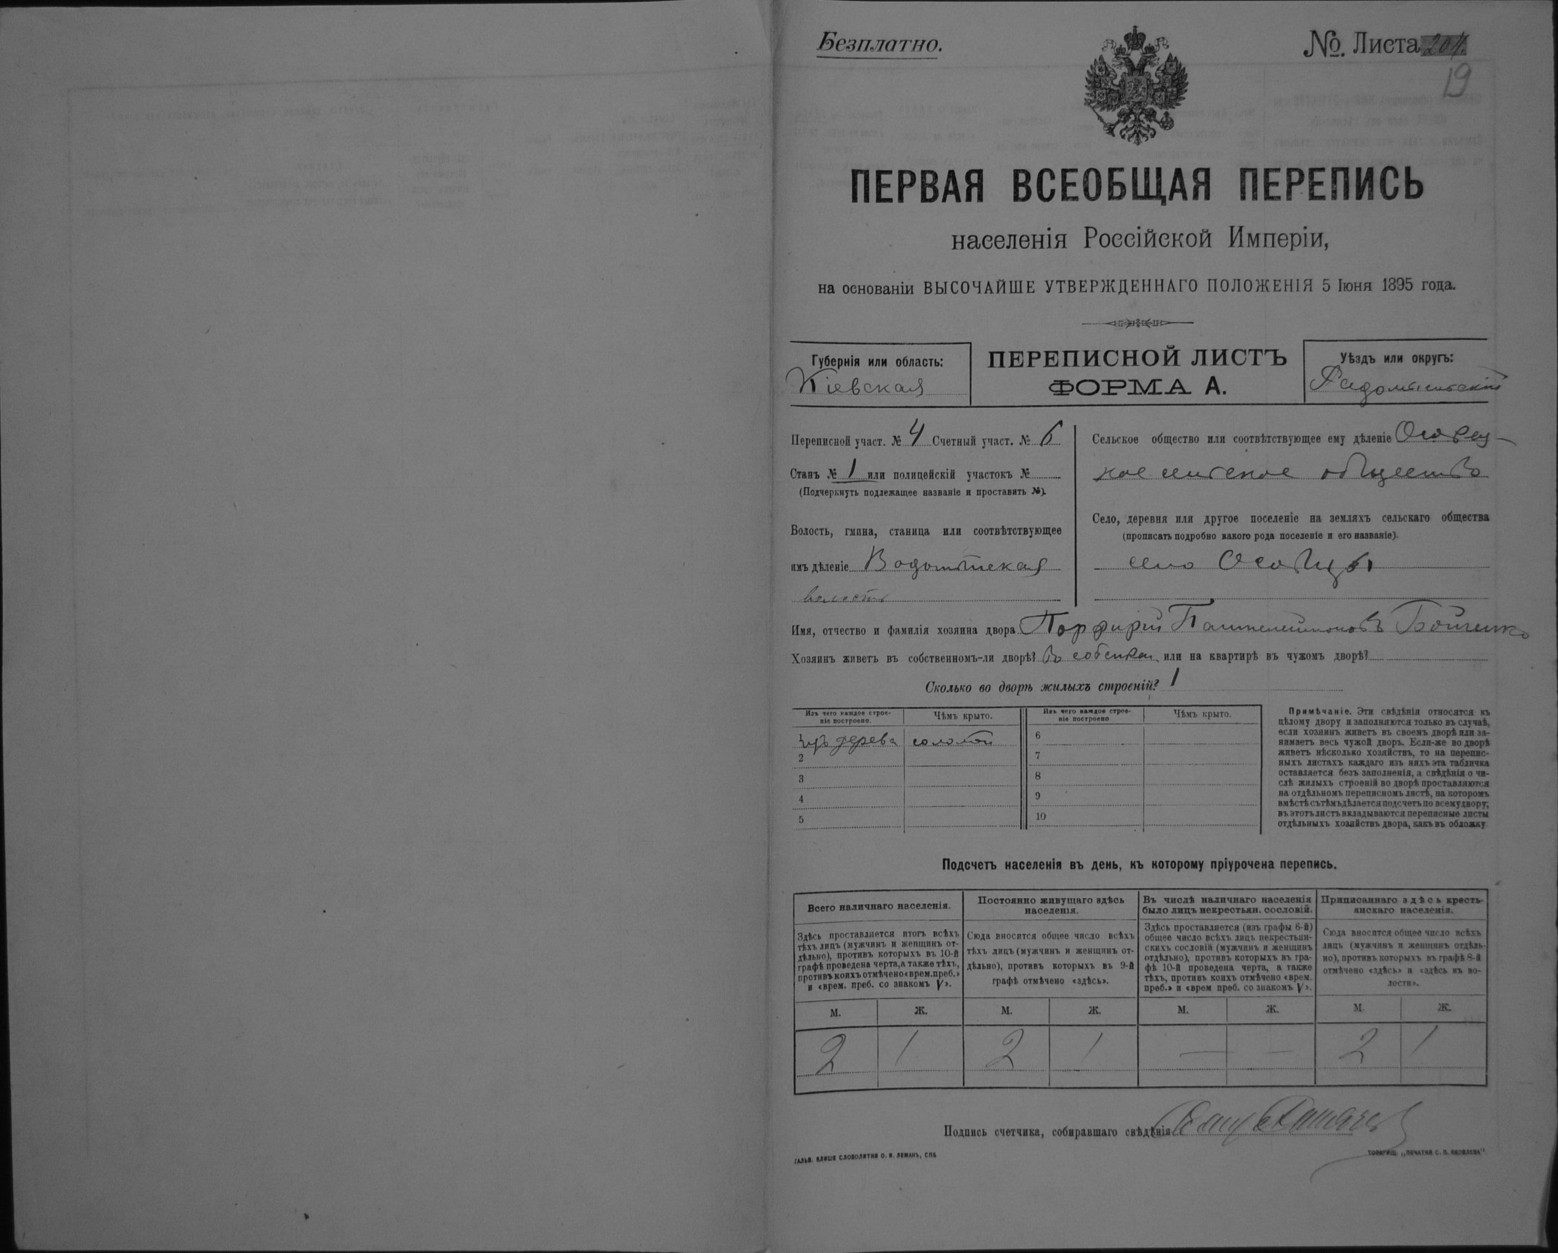 Безплатно.
№. Листа 204
19
ПЕРВАЯ ВСЕОБЩАЯ ПЕРЕПИСЬ
населенія Россійской Имперіи,
на основаніи ВЫСОЧАЙШЕ УТВЕРЖДЕННАГО ПОЛОЖЕНІЯ 5 Іюня 1895 года.
Губернія или область:
Кіевская
ПЕРЕПИСНОЙ ЛИСТЪ
ФОРМА А.
Уѣздъ или округъ:
Радомысльскій
Переписной участ. № 4 Счетный участ. № 6
Станъ № 1 или полицейскій участокъ №
(Подчеркнуть подлежащее названіе и проставить №).
Волость, гмина, станица или соотвѣтствующее
имъ дѣленіе Водотыйская
волость
Сельское общество или соотвѣтствующее ему дѣленіе Особец-
кое сельское общество
Село, деревня или другое поселеніе на земляхъ сельскаго общества
(прописать подробно какого рода поселеніе и его названіе).
село Особцы
Имя, отчество и фамилія хозяина двора Порфирій Пантелеймоновъ Бойченко
Хозяинъ живетъ въ собственномъ-ли дворѣ? въ собствен. или на квартирѣ въ чужомъ дворѣ?
Сколько во дворѣ жилыхъ строеній? 1
Изъ чего каждое строе-
ніе построено.
Чѣмъ крыто.
Изъ чего каждое строе-
ніе построено
Чѣмъ крыто.
изъ дерева соломой
2
3
4
5
6
7
8
9
10
Примѣчаніе. Эти свѣдѣнія относятся къ
цѣлому двору и заполняются только въ случаѣ,
если хозяинъ живетъ въ своемъ дворѣ или за-
нимаетъ весь чужой дворъ. Если-же во дворѣ
живетъ нѣсколько хозяйствъ, то на перепис-
ныхъ листахъ каждаго изъ нихъ эта табличка
оставляется безъ заполненія, а свѣдѣнія о чи-
слѣ жилыхъ строеній во дворѣ проставляются
на отдѣльномъ переписномъ листѣ, на которомъ
вмѣстѣ съ тѣмъ дѣлается подсчетъ по всему двору;
въ этотъ листъ вкладываются переписные листы
отдѣльныхъ хозяйствъ двора, какъ въ обложку.
Подсчетъ населенія въ день, къ которому пріурочена перепись.
Всего наличнаго населенія.
Здѣсь проставляется итогъ всѣхъ
тѣхъ лицъ (мужчинъ и женщинъ от-
дѣльно), противъ которыхъ въ 10-й
графѣ проведена черта, а также тѣхъ,
противъ коихъ отмѣчено «врем. преб.»
и «врем. преб. со знакомъ V».
Постоянно живущаго здѣсь
населенія.
Сюда вносится общее число всѣхъ
тѣхъ лицъ (мужчинъ и женщинъ от-
дѣльно), противъ которыхъ въ 9-й
графѣ отмѣчено «здѣсь».
Въ числѣ наличнаго населенія
было лицъ некрестьян. сословій.
Здѣсь проставляется (изъ графы 6-й)
общее число всѣхъ лицъ некрестьян-
скихъ сословій (мужчинъ и женщинъ
отдѣльно), противъ которыхъ въ гра-
фѣ 10-й проведена черта, а также
тѣхъ, противъ коихъ отмѣчено «врем.
преб.» и «врем преб. со знакомъ V».
Приписаннаго здѣсь кресть-
янскаго населенія.
Сюда вносится общее число всѣхъ
лицъ (мужчинъ и женщинъ отдѣль-
но), противъ которыхъ въ графѣ 8-й
отмѣчено «здѣсь» и «здѣсь къ во-
лости».
М. Ж. М. Ж. М. Ж. М. Ж.
2 1 2 1 — — 2 1
Подпись счетчика, собиравшаго свѣдѣнія
ГАЛЬВ. КЛИШЕ СЛОВОЛИТНИ О. И. ЛЕМАНЪ, СПБ.
ТОВАРИЩ. „ПЕЧАТНЯ С. П. ЯКОВЛЕВА".